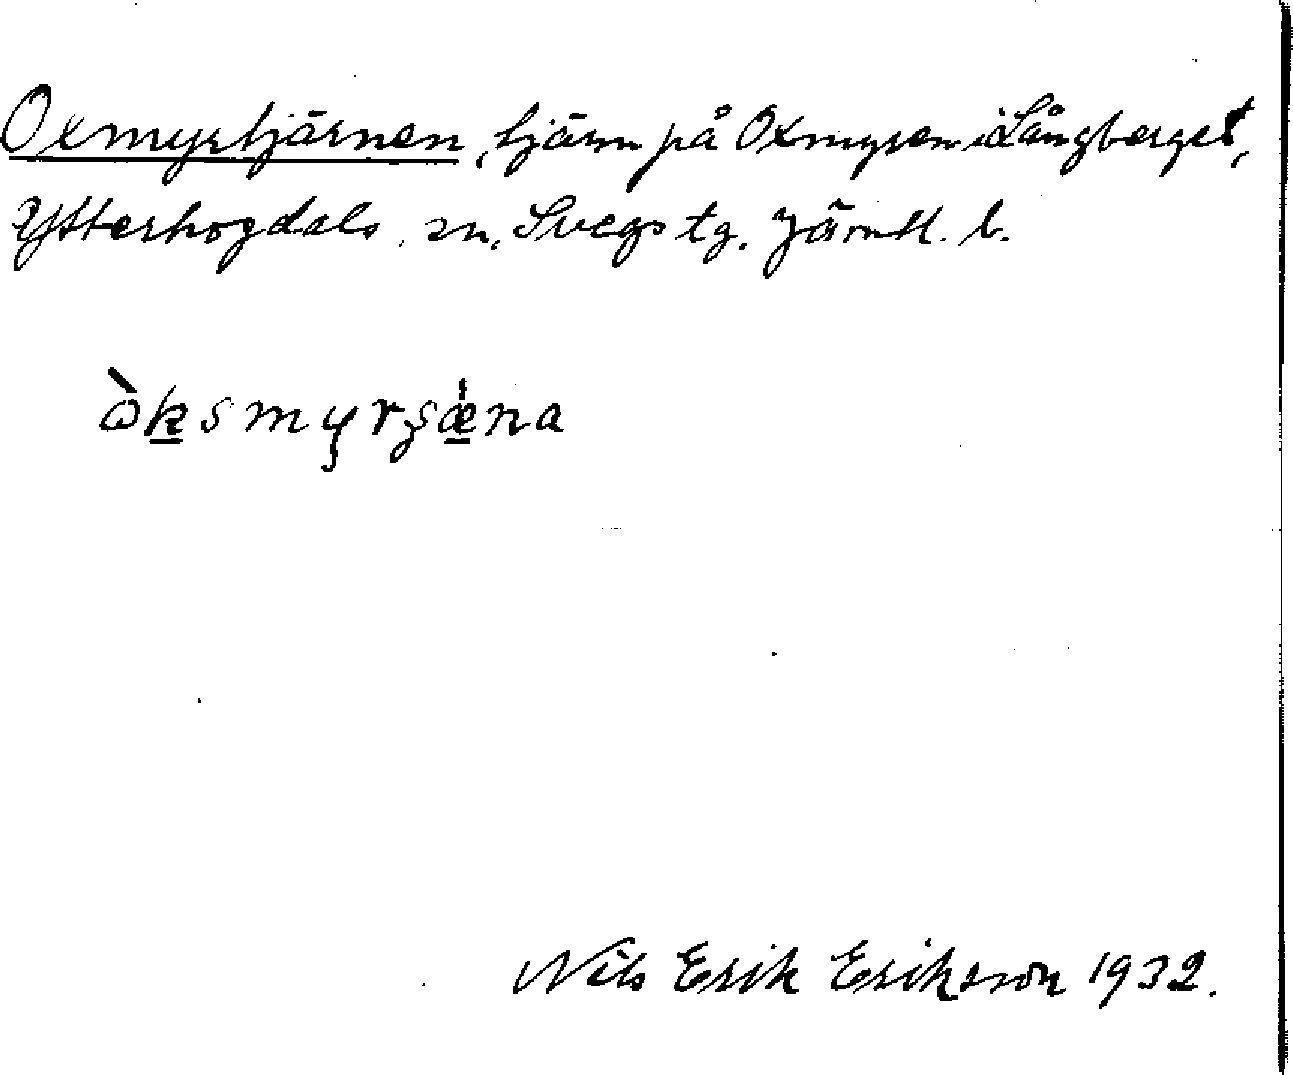 Oxmyrtjärnen, tjärn på Oxmyren i Långberget,
Ytterhogdals sn, Svegs tg. Jämtl. l.
ὼk̲smyrʂæ̲̍na
Nils Erik Eriksson 1932.